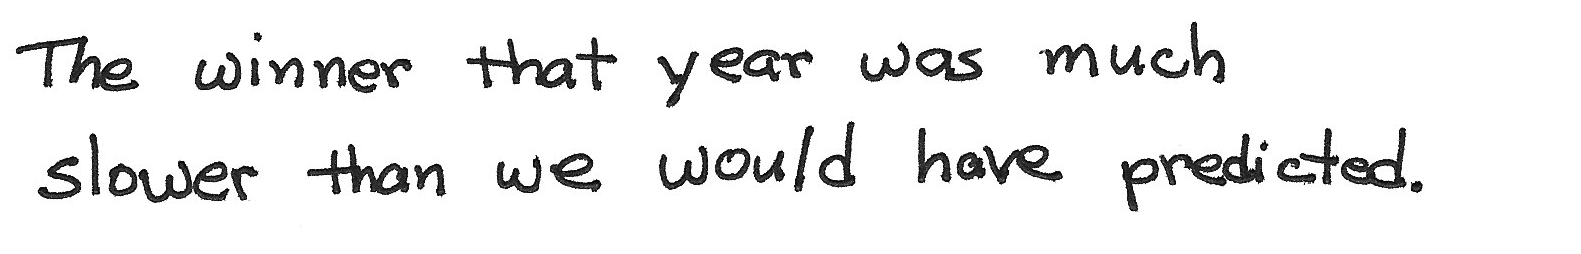 The winner that year was much
slower than we would have predicted.